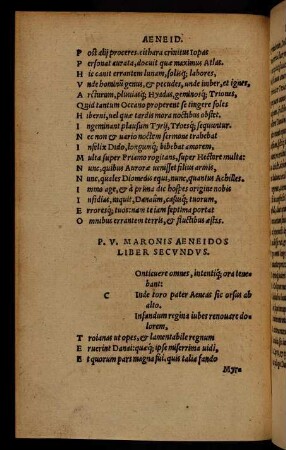 AENEID.
P ost alij proceres. cithara crinitus Iopas
P ersonat aurata, docuit quæ maximus Atlas.
H ic canit errantem lunam, solisq; labores,
V nde hominũ genus, & pecudes, unde imber, et ignes,
A rcturum, pluuiasq; Hyadas, geminosq; Triones,
Q uid tantum Oceano properent se tingere soles
H iberni, uel quæ tardis mora noctibus obstet.
I ngeminant plausum Tyrij, Troesq; sequuntur.
N ec non & uario noctem sermone trahebat
I nfelix Dido, longumq; bibebat amorem,
M ulta super Priamo rogitans, super Hectore multa:
N unc, quibus Auroræ uenisset filius armis,
N unc, quales Diomedis equi, nunc, quantus Achilles.
I mmo age, & à prima dic hospes origine nobis
I nsidias, inquit, Danaûm, casusq; tuorum,
E rroresq; tuos: nam te iam septima portat
O mnibus errantem terris, & fluctibus æstas.
P. V. MARONIS AENEIDOS
LIBER SECVNDVS.
Onticuere omnes, intentiq; ora tene
bant:
C Inde toro pater Aeneas sic orsus ab
alto.
Infandum regina iubes renouare do
lorem,
T roianas ut opes, & lamentabile regnum
E ruerint Danai: quæq; ipse miserrima uidi,
E t quorum pars magna fui. quis talia fando
Myr=